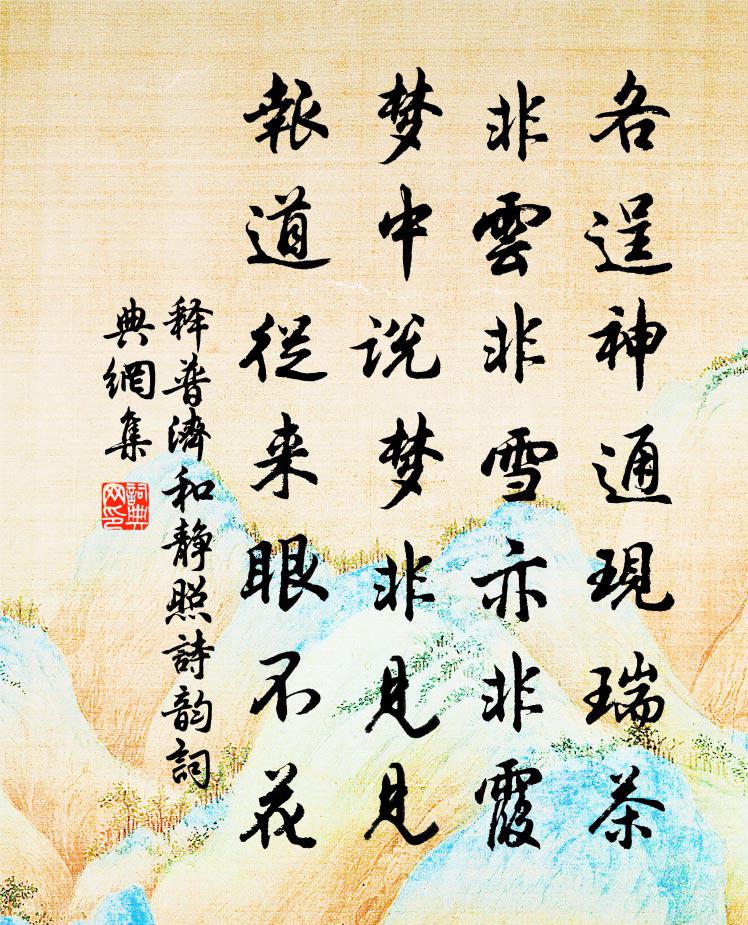 各逞神通現瑞茶
非雲非雪亦非霞
梦中说梦非見見
報道從来眼不花
释普濟和静照詩韵詞
典網集
詞典
网印